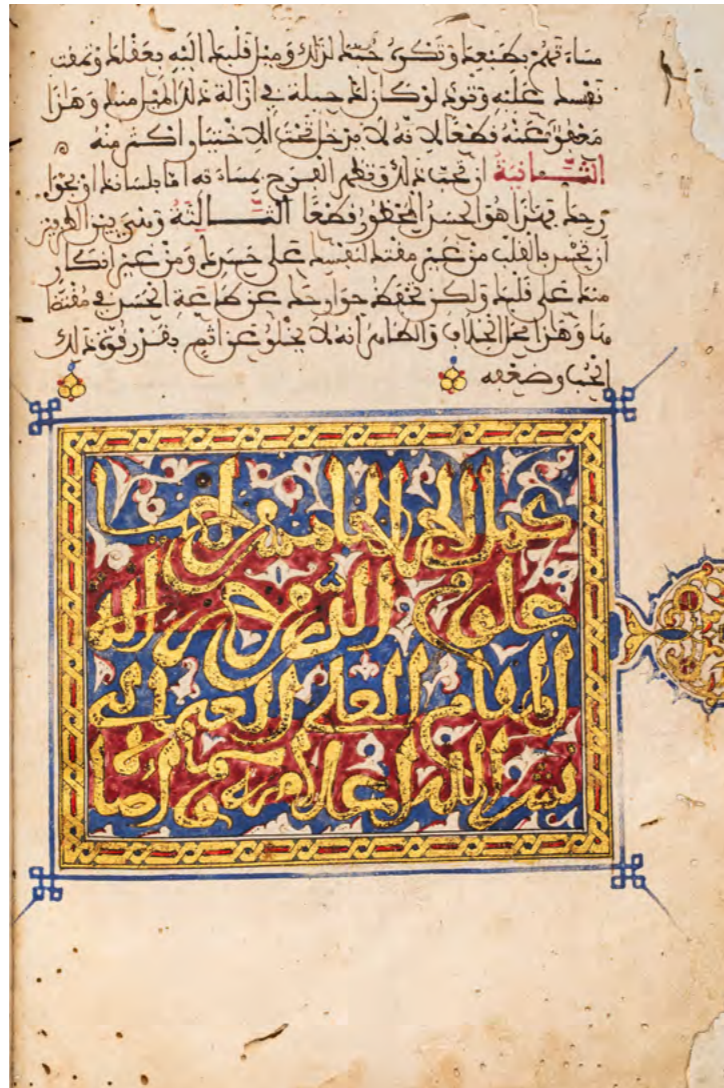 مساءتهم بطبعك وتكره حبك لذلك وميل قلبك اليه بعقلك وتمقت
نفسك عليه وتود لو كان لك حيلة في ازالة ذلك الميل منك وهذا
معفو عنه قطعا لانه لا يدخل تحت الاختيار اكثر منه
الثانية ان تحب ذلك وتظهر الفرح بمساءته اما بلسانك او بجوا
رحك فهذا هو الحسد المحظور قطعا الثالثة وهي بين الطرفين
ان تحسد بالقلب من غير مقتك لنفسك على حسدك ومن غير انكار
منك على قلبك ولكن تحفظ جوارحك عن طاعة الحسد في مقتضا
ها وهذا محل الخلاف والظاهر انه لا يخلو عن اثم بقدر قوة ذلك
الحب وضعفه
كمل الجزء الخامس من احيا
علوم الدين
المقام العلي
نشر الله اعلامه وامضا